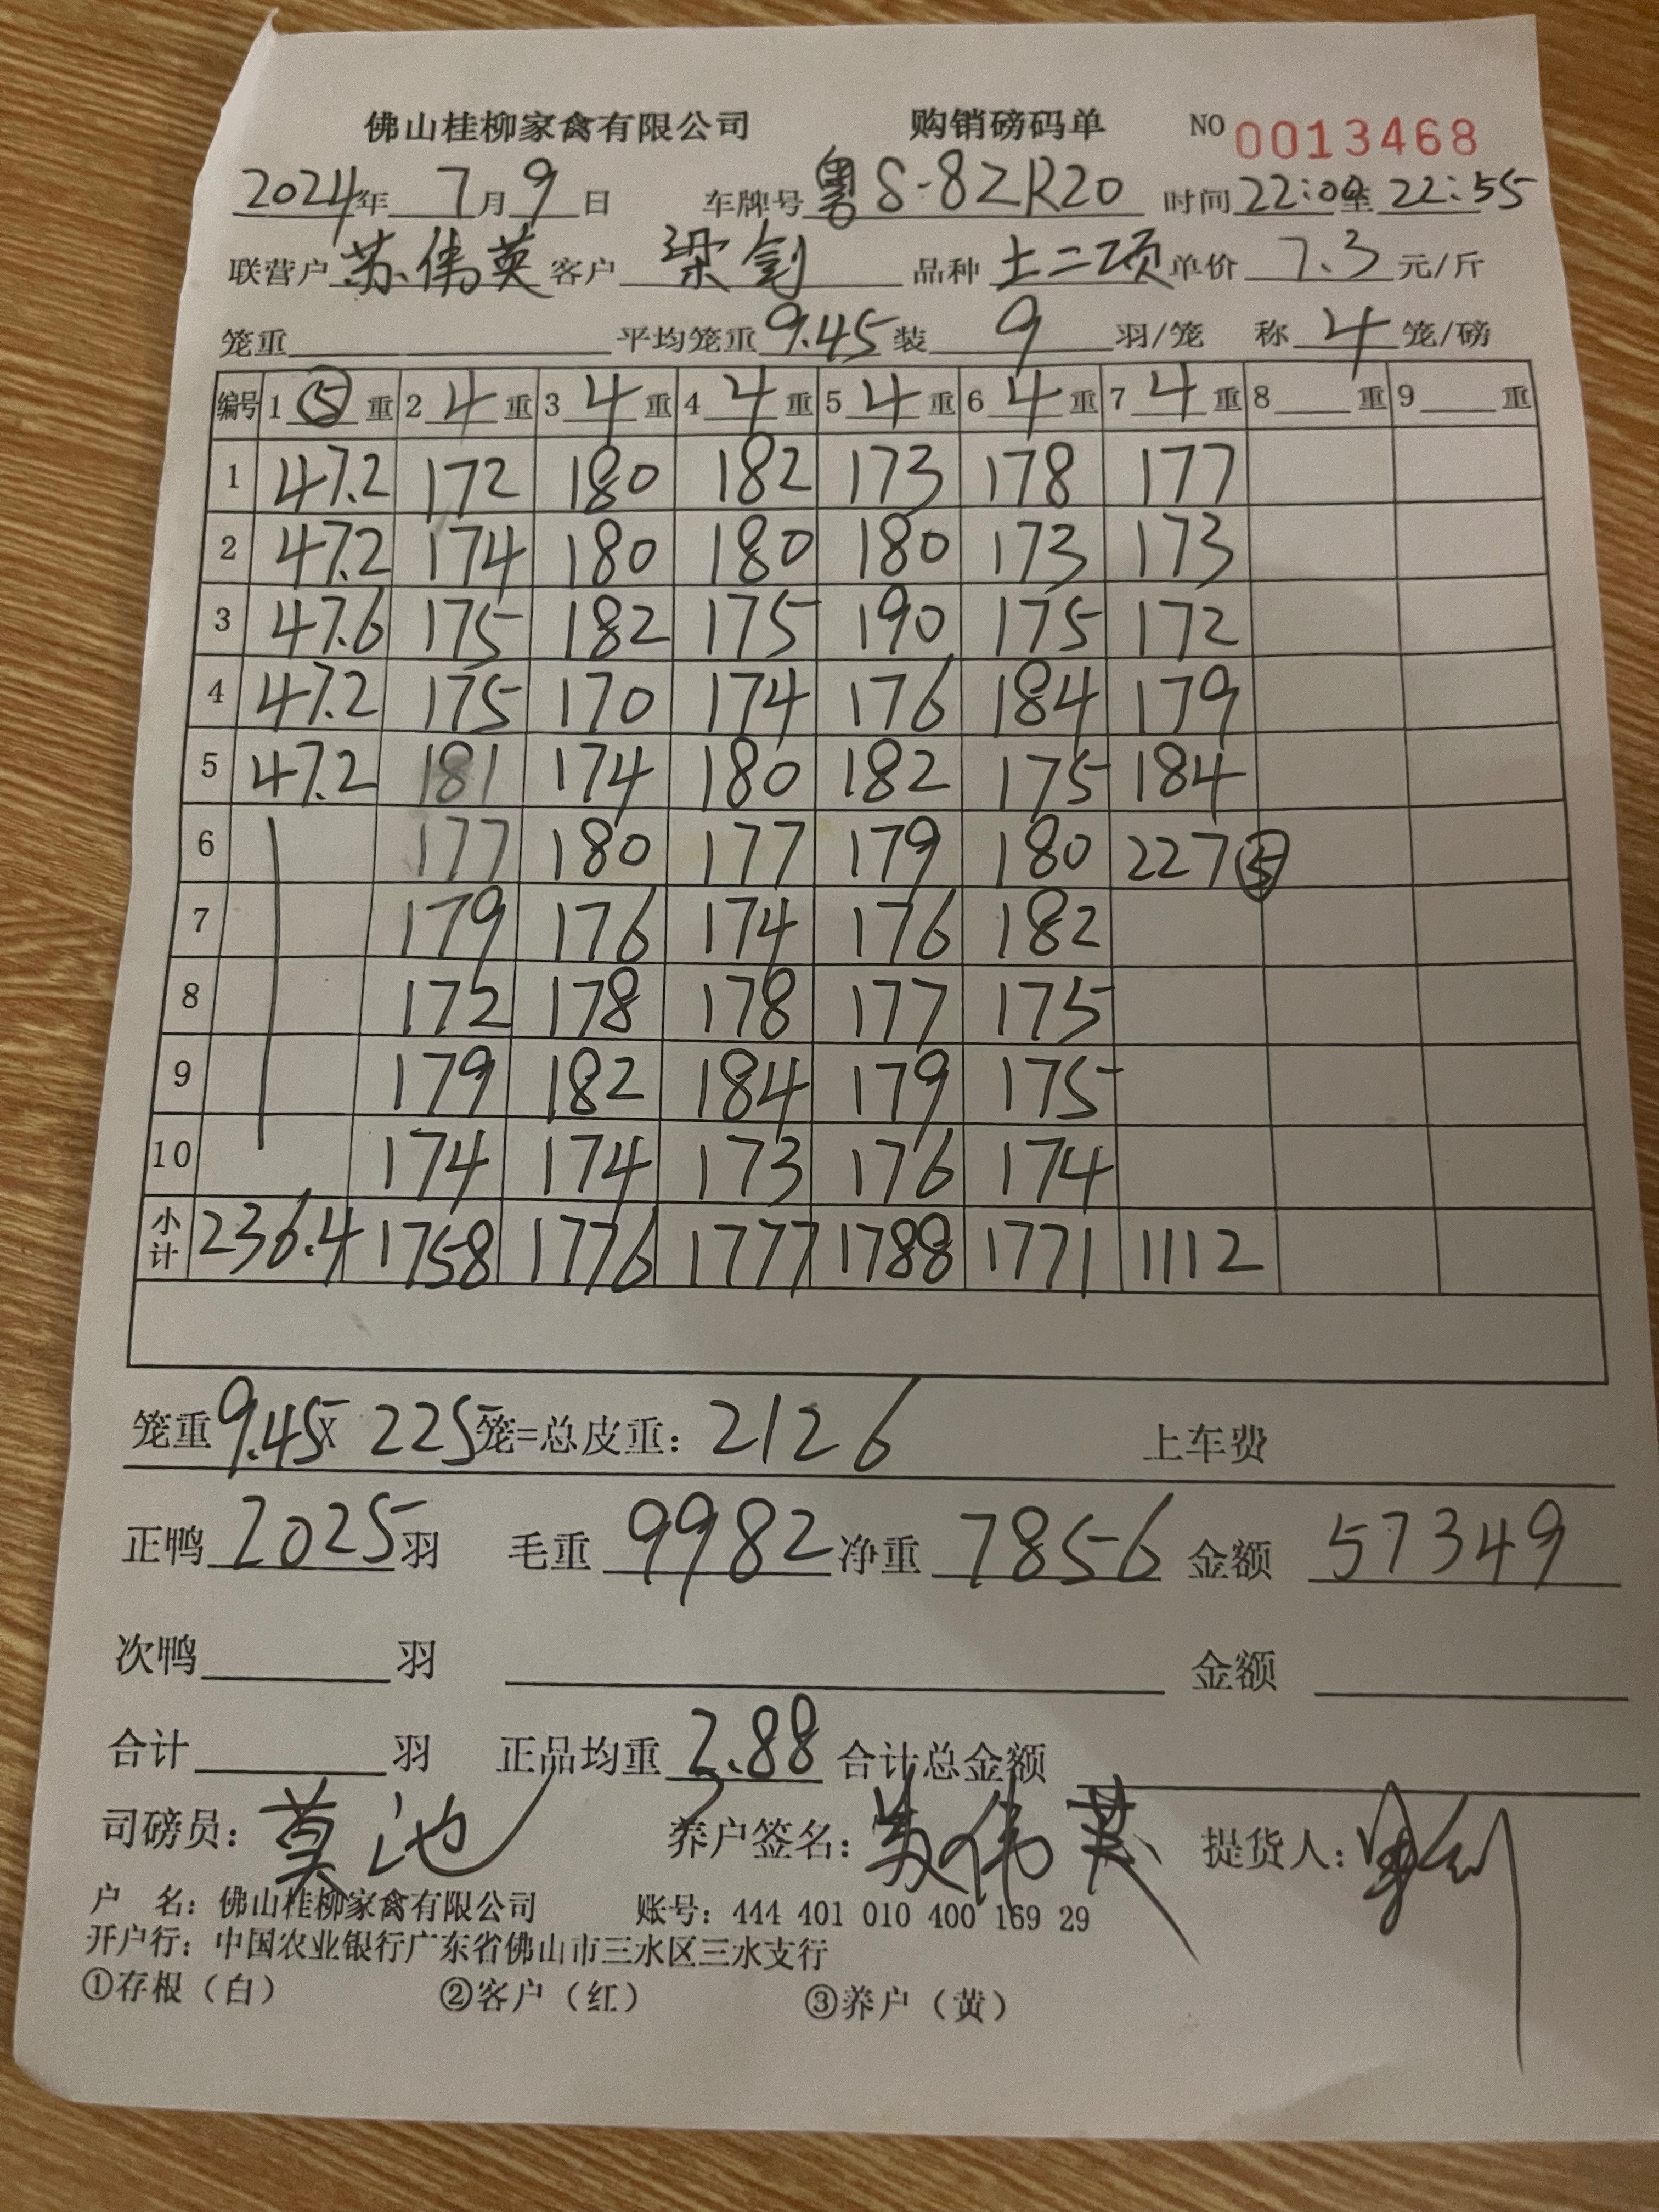 佛山桂柳家禽有限公司 购销磅码单 NO 0013468
2024年 7月9日 车牌号 粤S-82R20 时间 22:00至22:55
联营户 苏伟英 客户 梁剑 品种 土二项 单价 7.3 元/斤
笼重 平均笼重 9.45 装 9 羽/笼 称 4 笼/磅
编号 1 ⑤ 重 2 4 重 3 4 重 4 4 重 5 4 重 6 4 重 7 4 重 8 重 9 重
1 47.2 172 180 182 173 178 177
2 47.2 174 180 180 180 173 173
3 47.6 175 182 175 190 175 172
4 47.2 175 170 174 176 184 179
5 47.2 181 174 180 182 175 184
6 177 180 177 179 180 227⑤
7 179 176 174 176 182
8 172 178 178 177 175
9 179 182 184 179 175
10 174 174 173 176 174
小计 236.4 1758 1776 1777 1788 1771 1112
笼重 9.45 X 225 笼=总皮重: 2126 上车费
正鸭 2025 羽 毛重 9982 净重 7856 金额 57349
次鸭 羽 金额
合计 羽 正品均重 2.88 合计总金额
司磅员: 莫池 养户签名: 苏伟英 提货人:
户 名: 佛山桂柳家禽有限公司 账号: 444 401 010 400 169 29
开户行: 中国农业银行广东省佛山市三水区三水支行
①存根（白） ②客户（红） ③养户（黄）